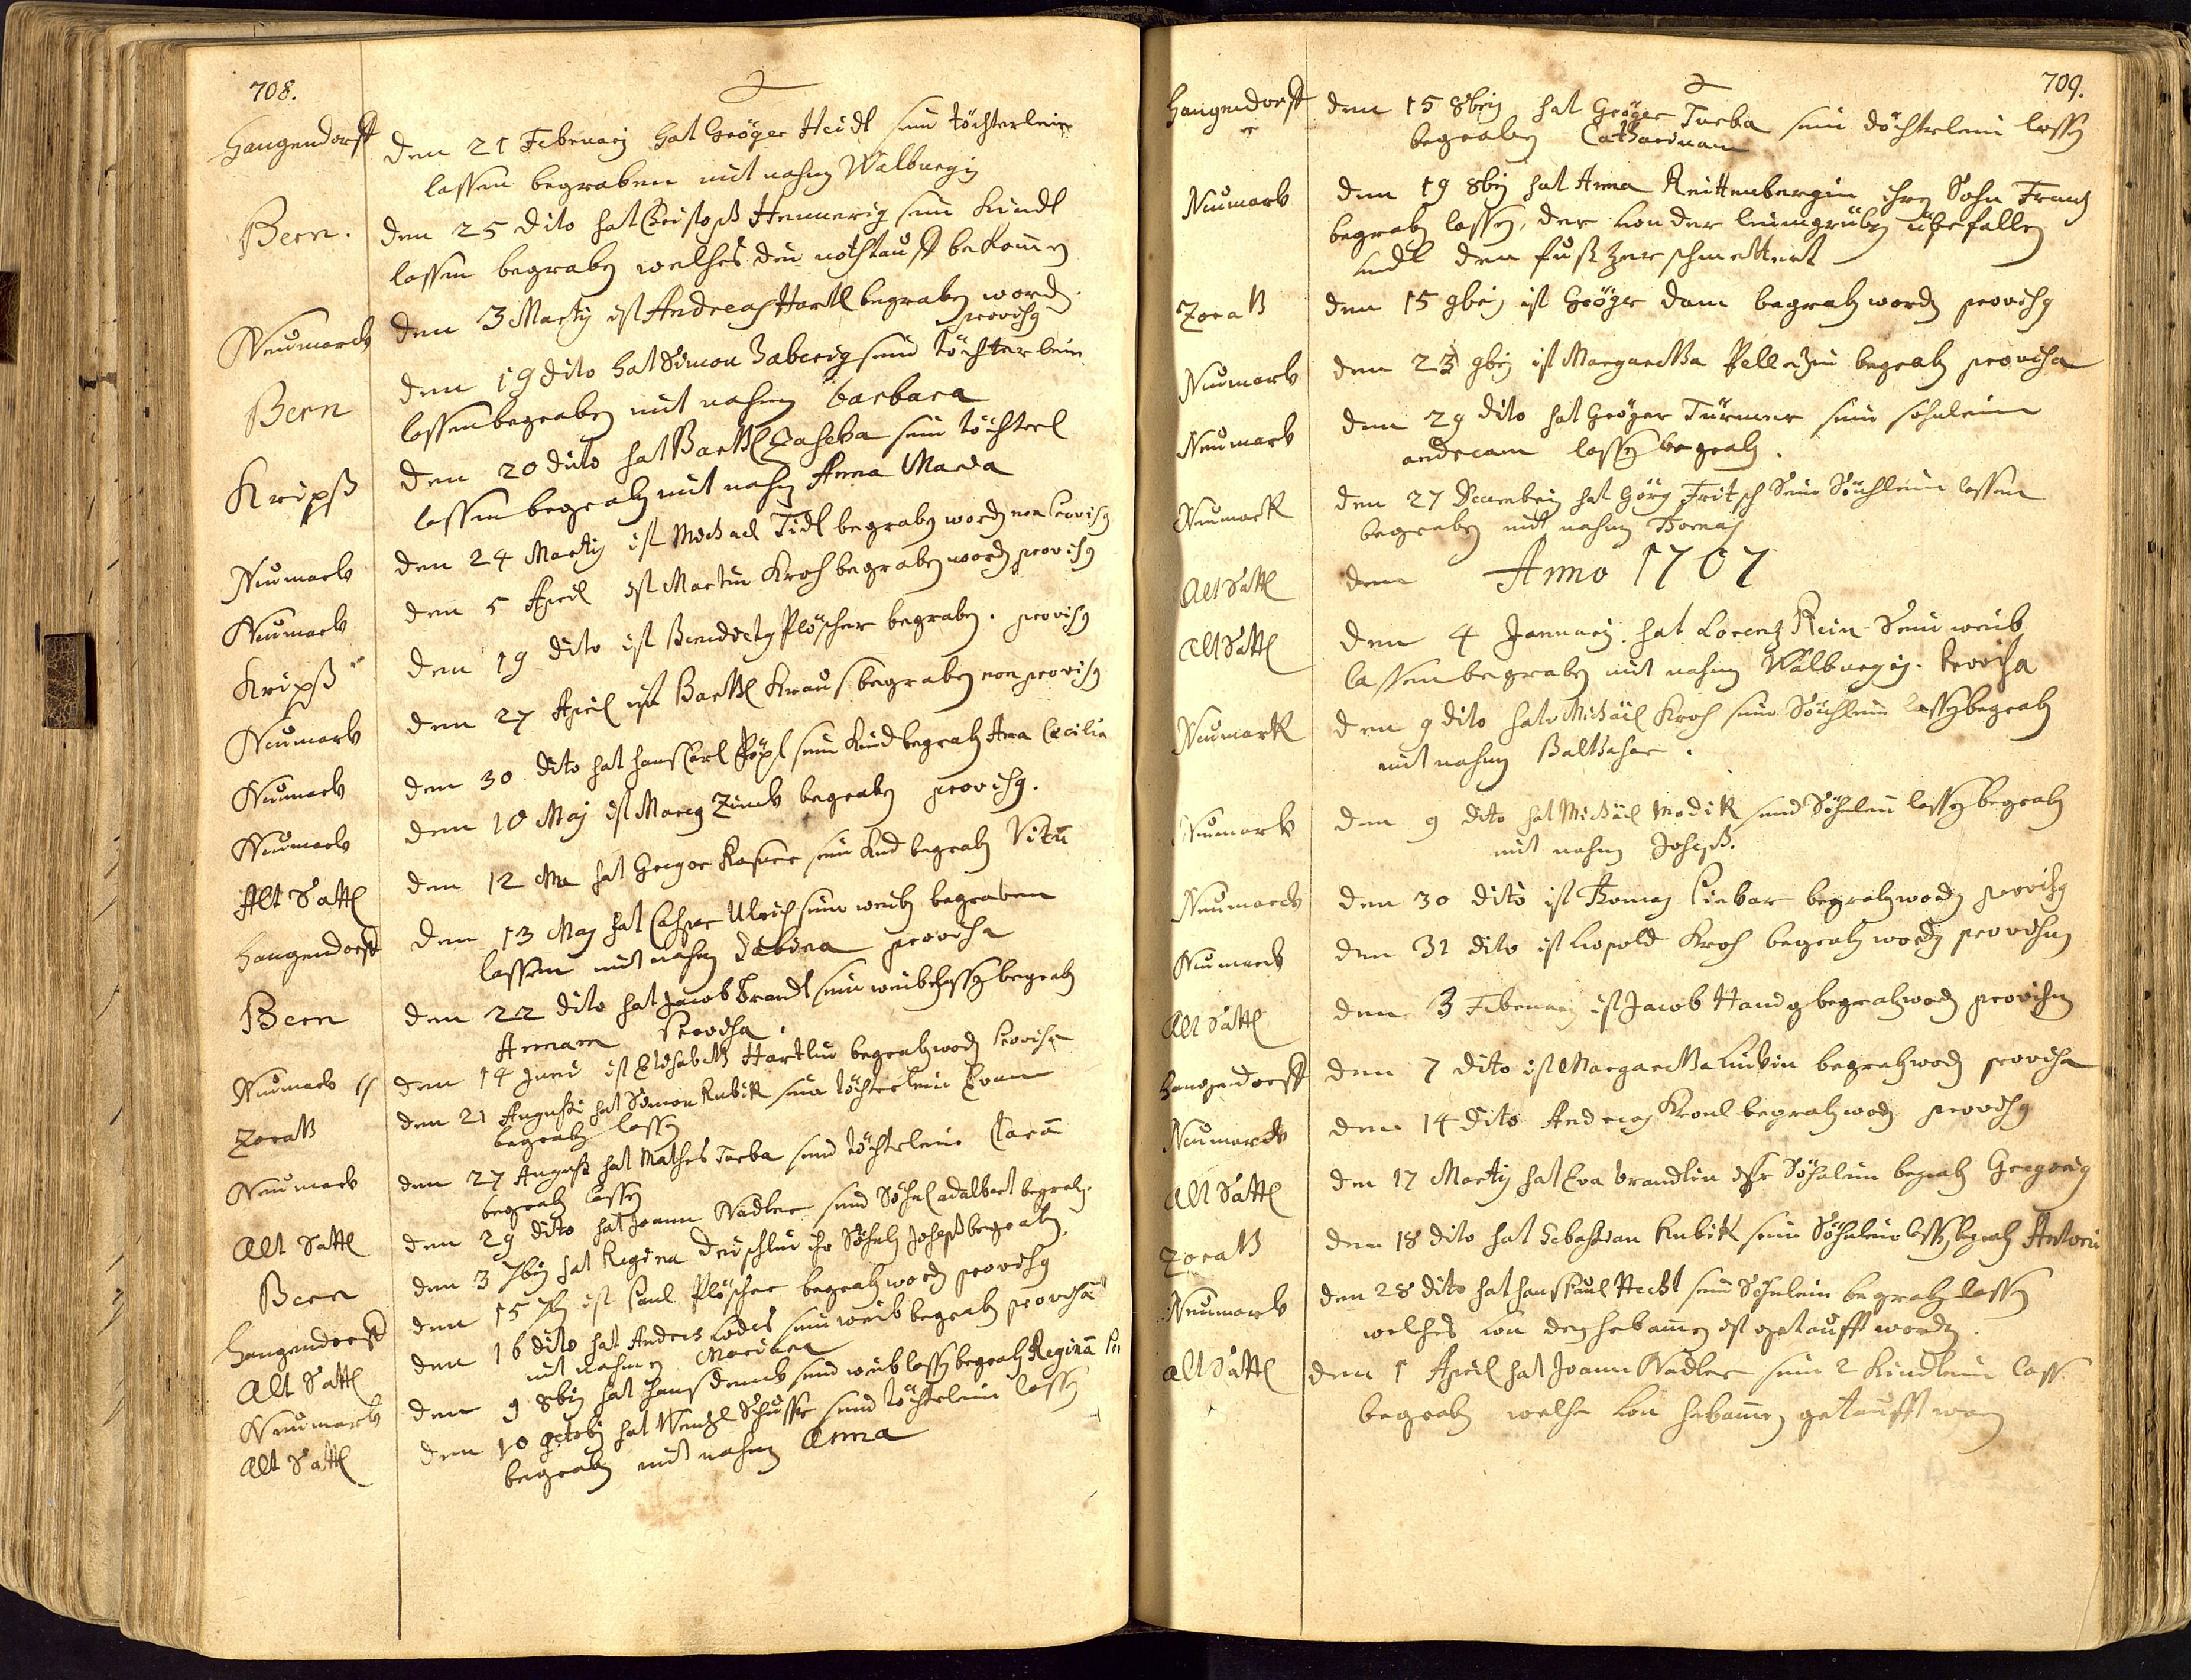 708.
Hangendorff den 21 Februarij hat Geörger Heidl sein töchterlein
lassen begraben mit nahmen Walburgij
Bern. den 25 dito hat Christoph Hennerig sein Kindl
lassen begraben welches die nothtauff bekommen
Neumarck den 3 Martij ist Andreas Hartl begraben word.
provisg
Bern den 19 dito hat Simon Zaberig sein töchterlein
lassen begraben mit nahmen barbara
Kripß den 20 dito hat Barthl sein töchterl
lassen begrab mit nahm Anna Maria
Neumark den 24 Martij ist Michael Tidl begraben worden non provisg
Neumark den 5 April ist Martin Kroh begraben worden provisg
Kripß den 19 dito ist Benedictg Plöscher begraben. provisg
Neumark den 27 April ist Barthl Kraus begraben non provisg
Neumark den 30 dito hat hans Carl Pöpl sein Kind begrab Ana Cecilia
Neumark den 10 Maj ist Marcg Zinck begraben provisg.
Alt Sattl den 12 Ma hat Gregor Kasper sein Kind begrab Vitū
Hangendorff den 13 Maj hat Casper Ulrich sein weib begraben
lassen mit nahm Sabina provisa
Bern den 22 dito hat Jacob brandl sein weib lassen begrab
Annam provisa.
Neumark den 14 Juni ist Elisabeth Hartlin begrab word provisa
Zorab den 21 Augusti hat Simon Kubik sein töchterlein Evam
begrab lassen
Neumark den 27 August hat Mathes Turba sein töchterlein Clarā
begrab lassen
Alt Sattl den 29 dito hat Joann Nadler sein Söhnl adalbert begrab.
Bern den 3 7bris hat Regina ihr Söhnl Joseph begrab.
Hangendorff den 15 7bris ist Paul Plöscher begrab word provisg
Alt Sattl den 16 dito hat Anderes Loders sein weib begrab provisa
mit nahmen Marina
Neumark den 9 8bris hat Hans sein weib lassen begrab Reginā
Alt Sattl den 10 octobr hat Wenzl Schuster sein töchterlein lassen
begrab mit nahm Anna
709.
Hangendorff den 15 8bris hat Geörger Turba sein döchterlein lassen
begraben Catharinam
Neumark den 19 8bris hat Anna Reittenbergin ihren Sohn Frantz
begrab lassen, der von der leimgruben überfallen
undt den fuß zerschmettert
Zorab den 15 9bris ist Geörge dam begrab word provisg
Neumark den 23 9bris ist Margaretha begrab provisa
Neumark den 29 dito hat Geörger Türmer sein sohnlein
andream lassen begrab.
Neumark den 27 Decembris hat Görg Fritsch Sein Söhlein lassen
begraben mit nahmen Thomas
Alt Sattl den Anno 1707
Alt Sattl den 4 Januarij. hat Lorentz Rein Sein weib
lassen begraben mit nahmen Walburgij. provisa
Neumark den 9 dito hat Michäel Kroh sein Söhlein lassen begrab
mit nahmen Balthasar.
Neumark den 9 dito hat Michäel Modik sein Söhnlein lassen begrab
mit nahmen Joseph.
Neumarck den 30 dito ist Thomas begrab word provisg
Neumark den 31 dito ist Leopold Kroh begrab word provisus
Alt Sattl den 3 Februarij ist Jacob Handg begrab word provisus
Hangendorff den 7 dito ist Margaretha begrab word provisa
Neumarck den 14 dito Andreas Kroul begrab word provisg
Alt Sattl den 17 Martij hat Eva brandlin ihr Söhnlein begrab Gregorig
Zorab den 18 dito hat Sebastian Kubik sein Söhnlein lassen begrab Antoni
Neumark den 28 dito hat hans Paul Hecht sein Söhnlein begrab lassen
welches von der hebamen ist getaufft worden.
Alt Sattl den 1 April hat Joann Nadler sein 2 Kindlein lass
begrab welche von hebamen getaufft word